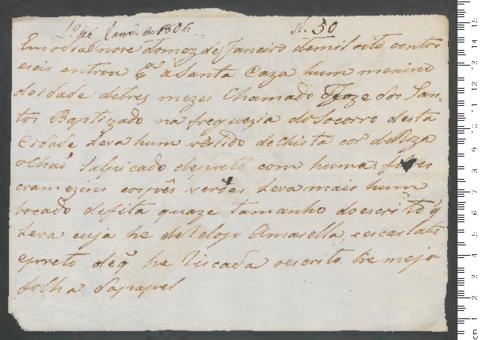 de 1806 N. 50
Em o dia nove do mez de Janeiro de mil oito centos
e seis entrou pª a Santa Caza hum menino
de idade de tres mezes chamado Joze dos San-
tos Baptizado na freguezia do Socorro desta
Cidade Leva hum vestido de chista cor de Roza
o chaõ salpicado de preto com humas flores
cramezins com pes verdes Leva mais hum
bocado de fita quaze tamanho do escrito q
Leva cuja he de Amarella e escarlate
e preto de q he riscada o escrito he meja
folha de papel